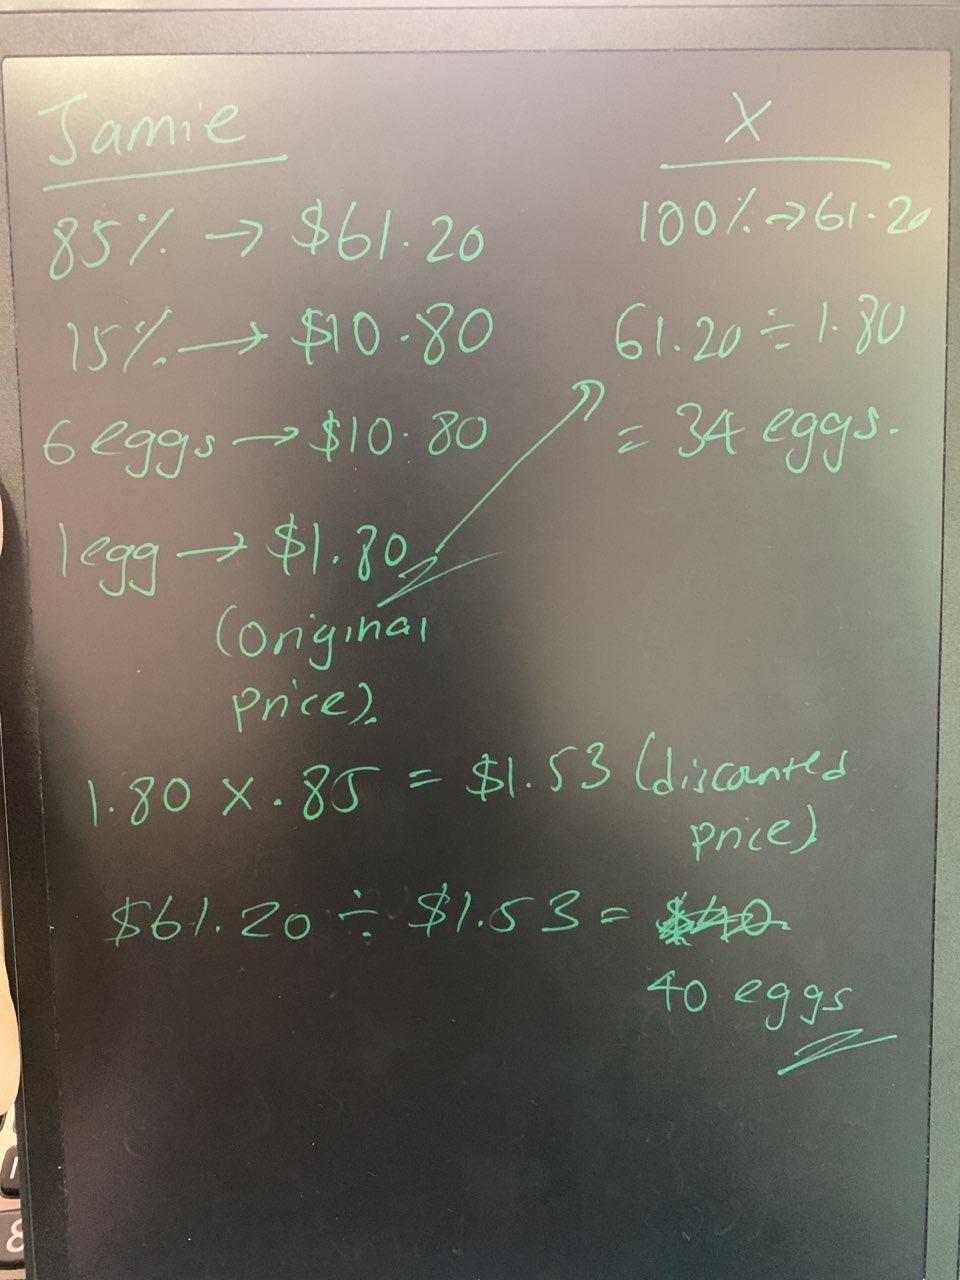 Jamie
85% → $61.20
15% → $10.80
6 eggs → $10.80
1 egg → $1.80
(original
price).
X
100% → 61.20
61.20 ÷ 1.80
= 34 eggs.
1.80 x .85 = $1.53 (discounted
price)
$61.20 ÷ $1.53 = $40
40 eggs